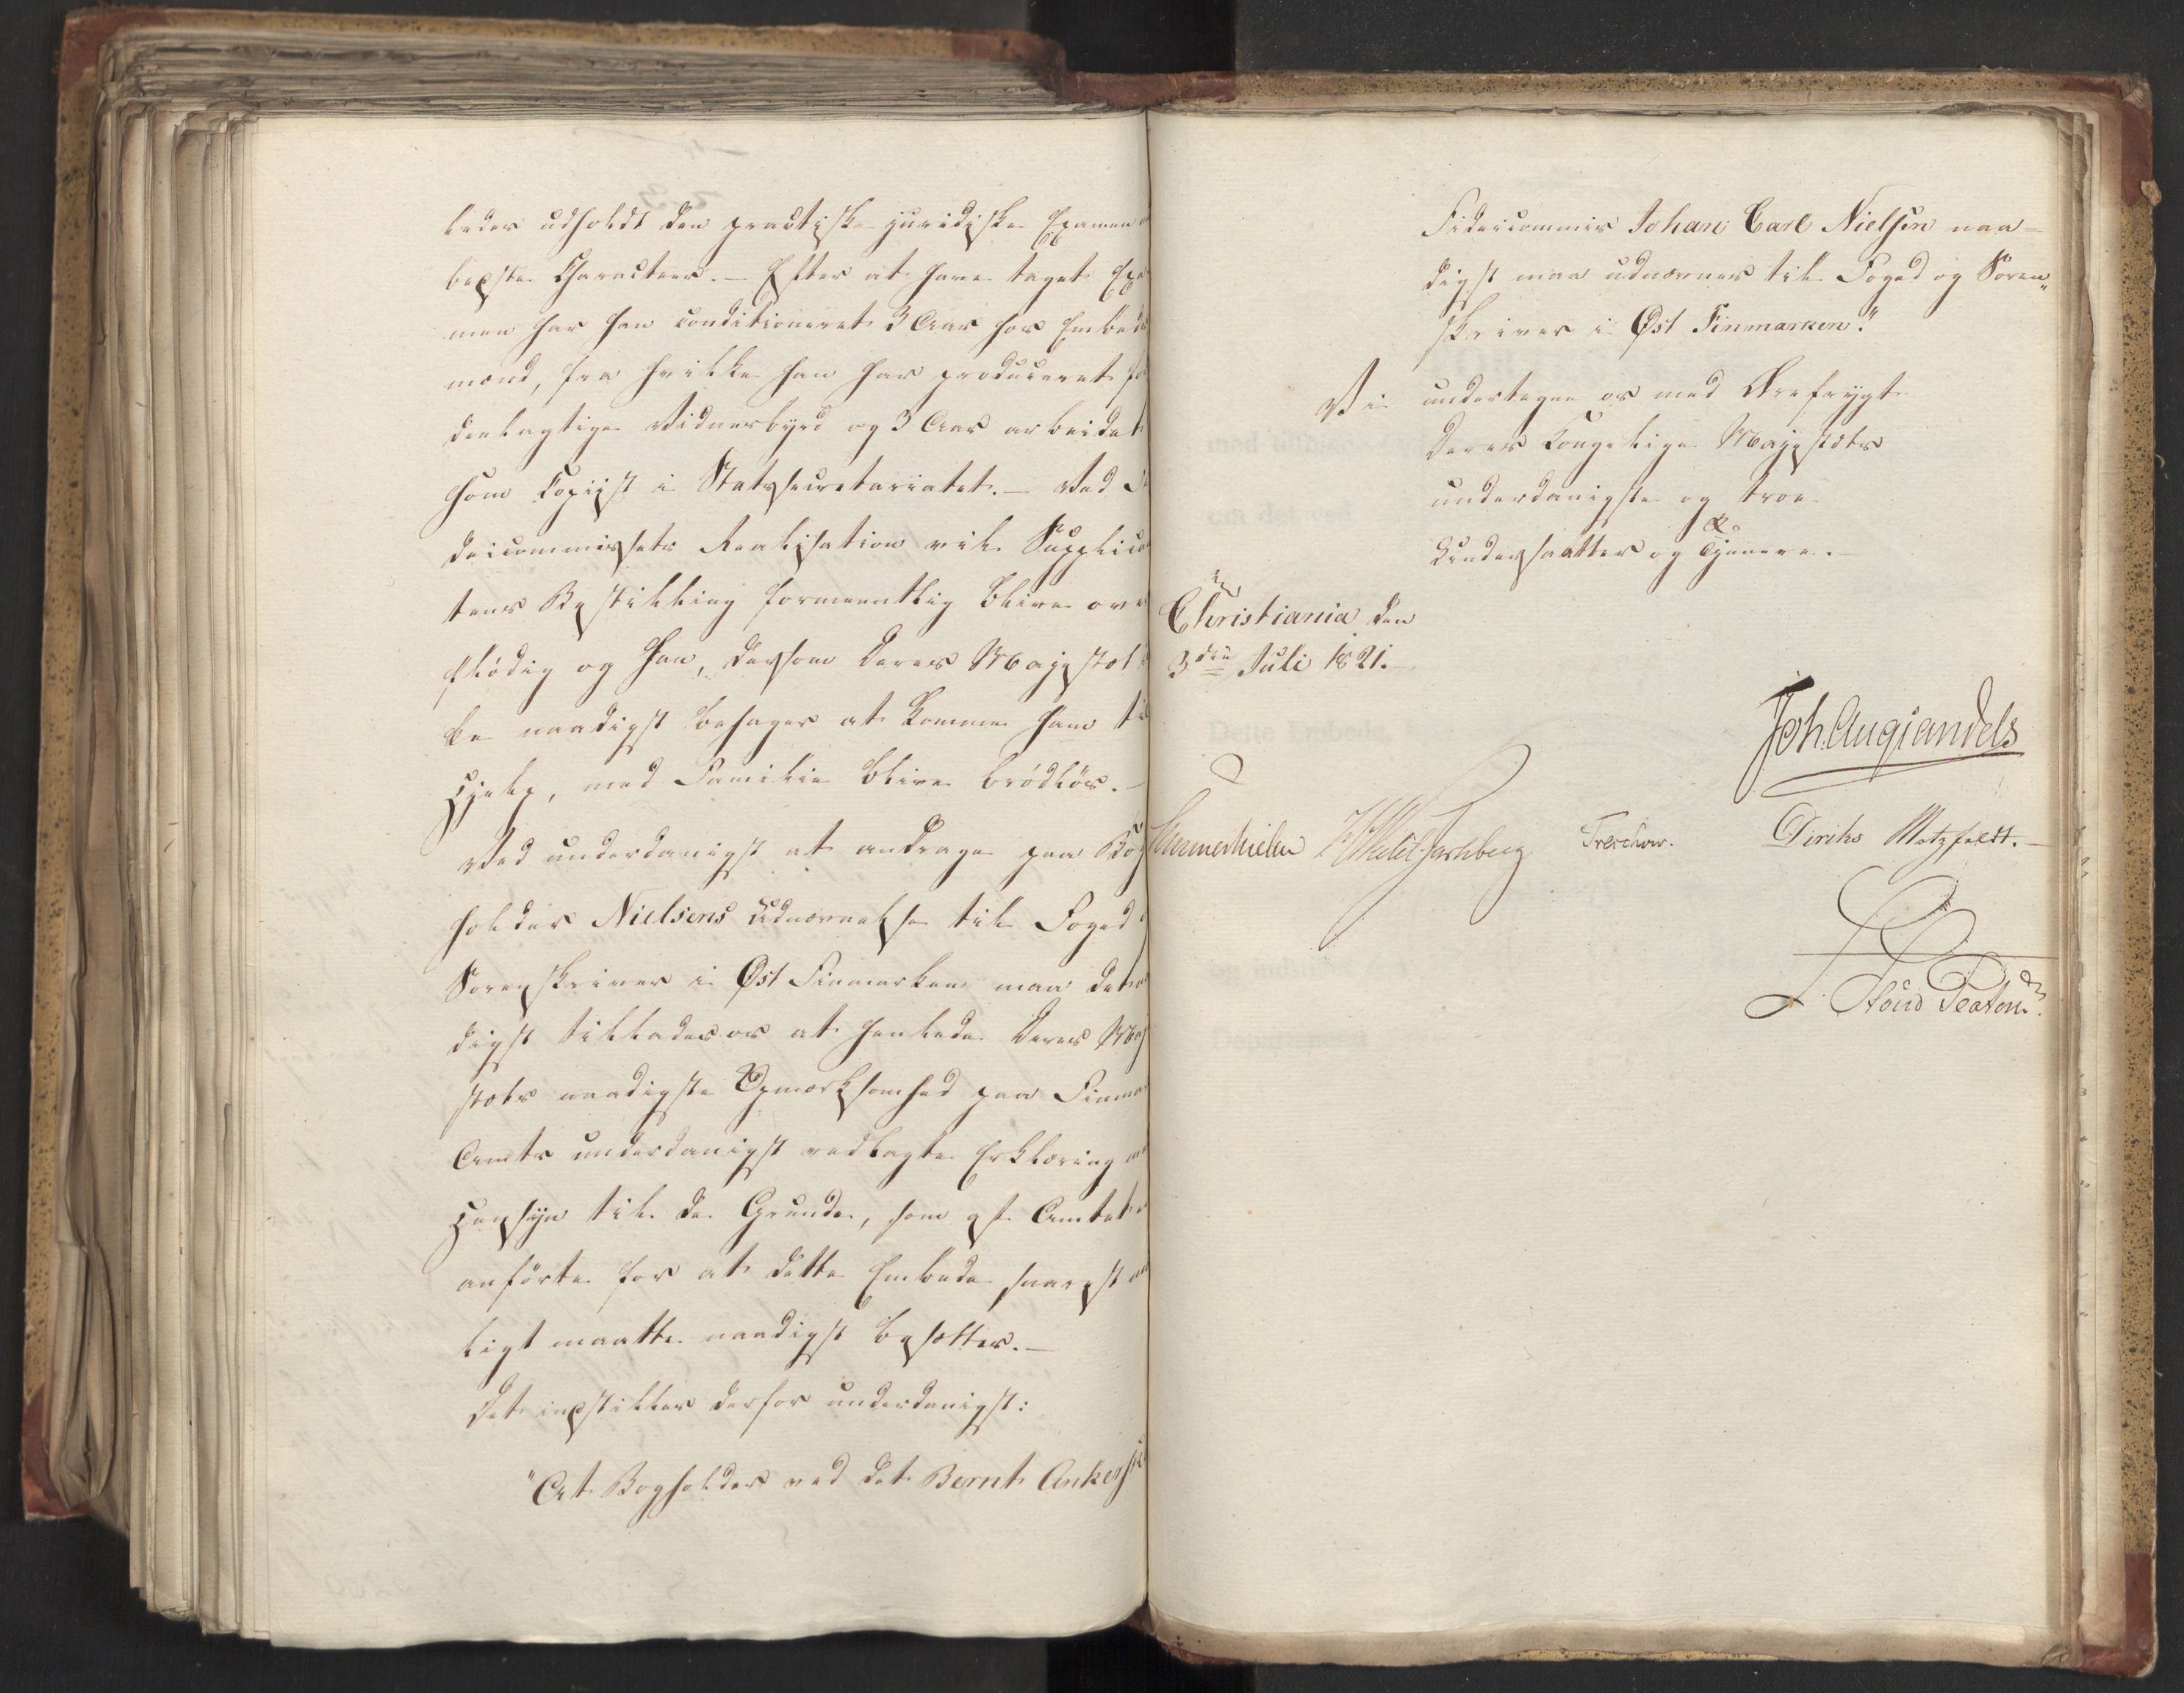 ledes udholdt den practisk-juridiske Examen
bedste Characteer. — Efter at have taget Exa
men har han conditioneret 3 Aar hos Embeds
mænd, fra hvilke han har produceret for
deelagtige Vidnesbyrd og 3 Aar arbeidet
som Copiist i Statssecretariatet. — Ved Fi
deicommissets Realisation vil Supplican
tens Bestilling formeentlig blive over
flødig og han, dersom Deres Majestæt ik
ke naadigst behager at komme ham til
Hjelp, med Familie blive brødløs. —
Ved underdanigst at andrage paa Bog
holder Nielsens Udnævnelse til Foged og
Sorenskriver i Øst Finmarken maa det
digst tillades os at henlede Deres Maj
stæts naadigste Opmærksomhed paa Finma
Amts underdanigst vedlagte Erklæring
Hensyn til de Grunde, som Amtet
anførte for at dette Embede snarest
ligt maatte naadigst besættes. —
Det indstilles derfor underdanigst:
"At Bogholder ved det Bernt Ankerske
Fideicommis Johan Carl Nielsen naa-
digst maa udnævnes til Foged og Soren-
skriver i Øst Finmarken."
Vi undertegne os med Ærefrygt
Deres Kongelige Majestæts
underdanigste og troe
Undersaatter og Tjenere. —
Christiania den
3die Juli 1821. —
Joh. Aug. Sandels
Sommerhielm Treschow. Dirike Motzfeldt. —